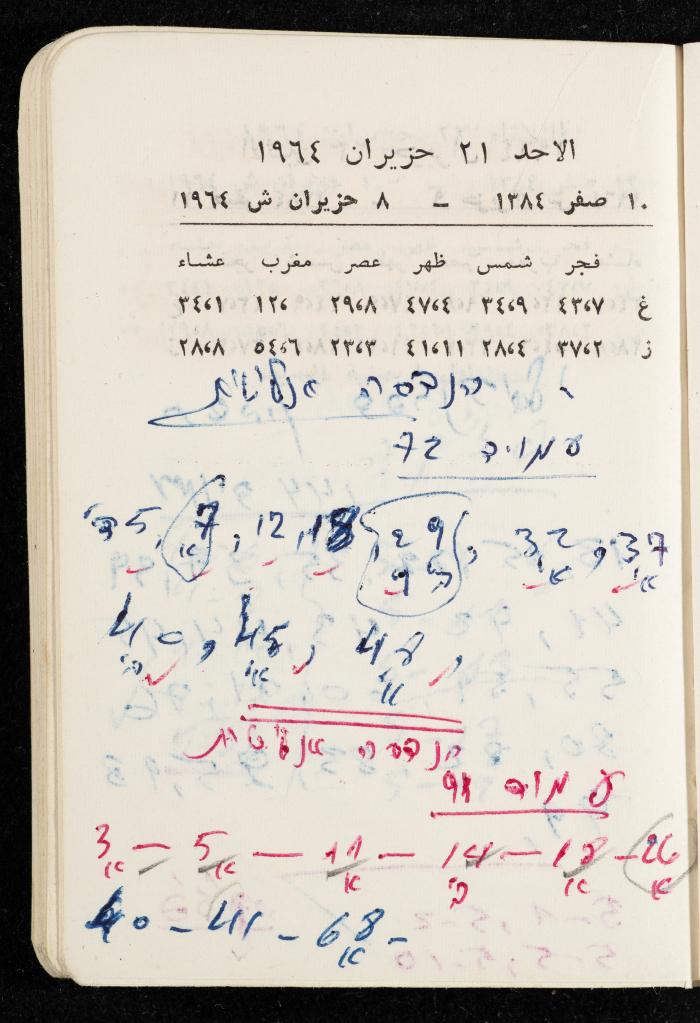 الاحد ٢١ حزيران ١٩٦٤
١٠ صفر ١٣٨٤ – ٨ حزيران ش ١٩٦٤
فجر شمس ظهر عصر مغرب عشاء
غ ٧،٤٣ ٩،٣٤ ٤،٤٧ ٨،٢٩ ،١٢ ١،٣٤
ز ٢،٣٧ ٤،٢٨ ١١،٤١ ٣،٢٣ ٦،٥٤ ٨،٢٨
הנדסה אנליטית
עמוד 72
5, 7, 12, 18, 29, 32, 37
40, 45, 48,
הנדסה אנליטית
עמוד 91
3 — 5 — 11 — 14 — 18 — 26
40 – 41 – 68 –